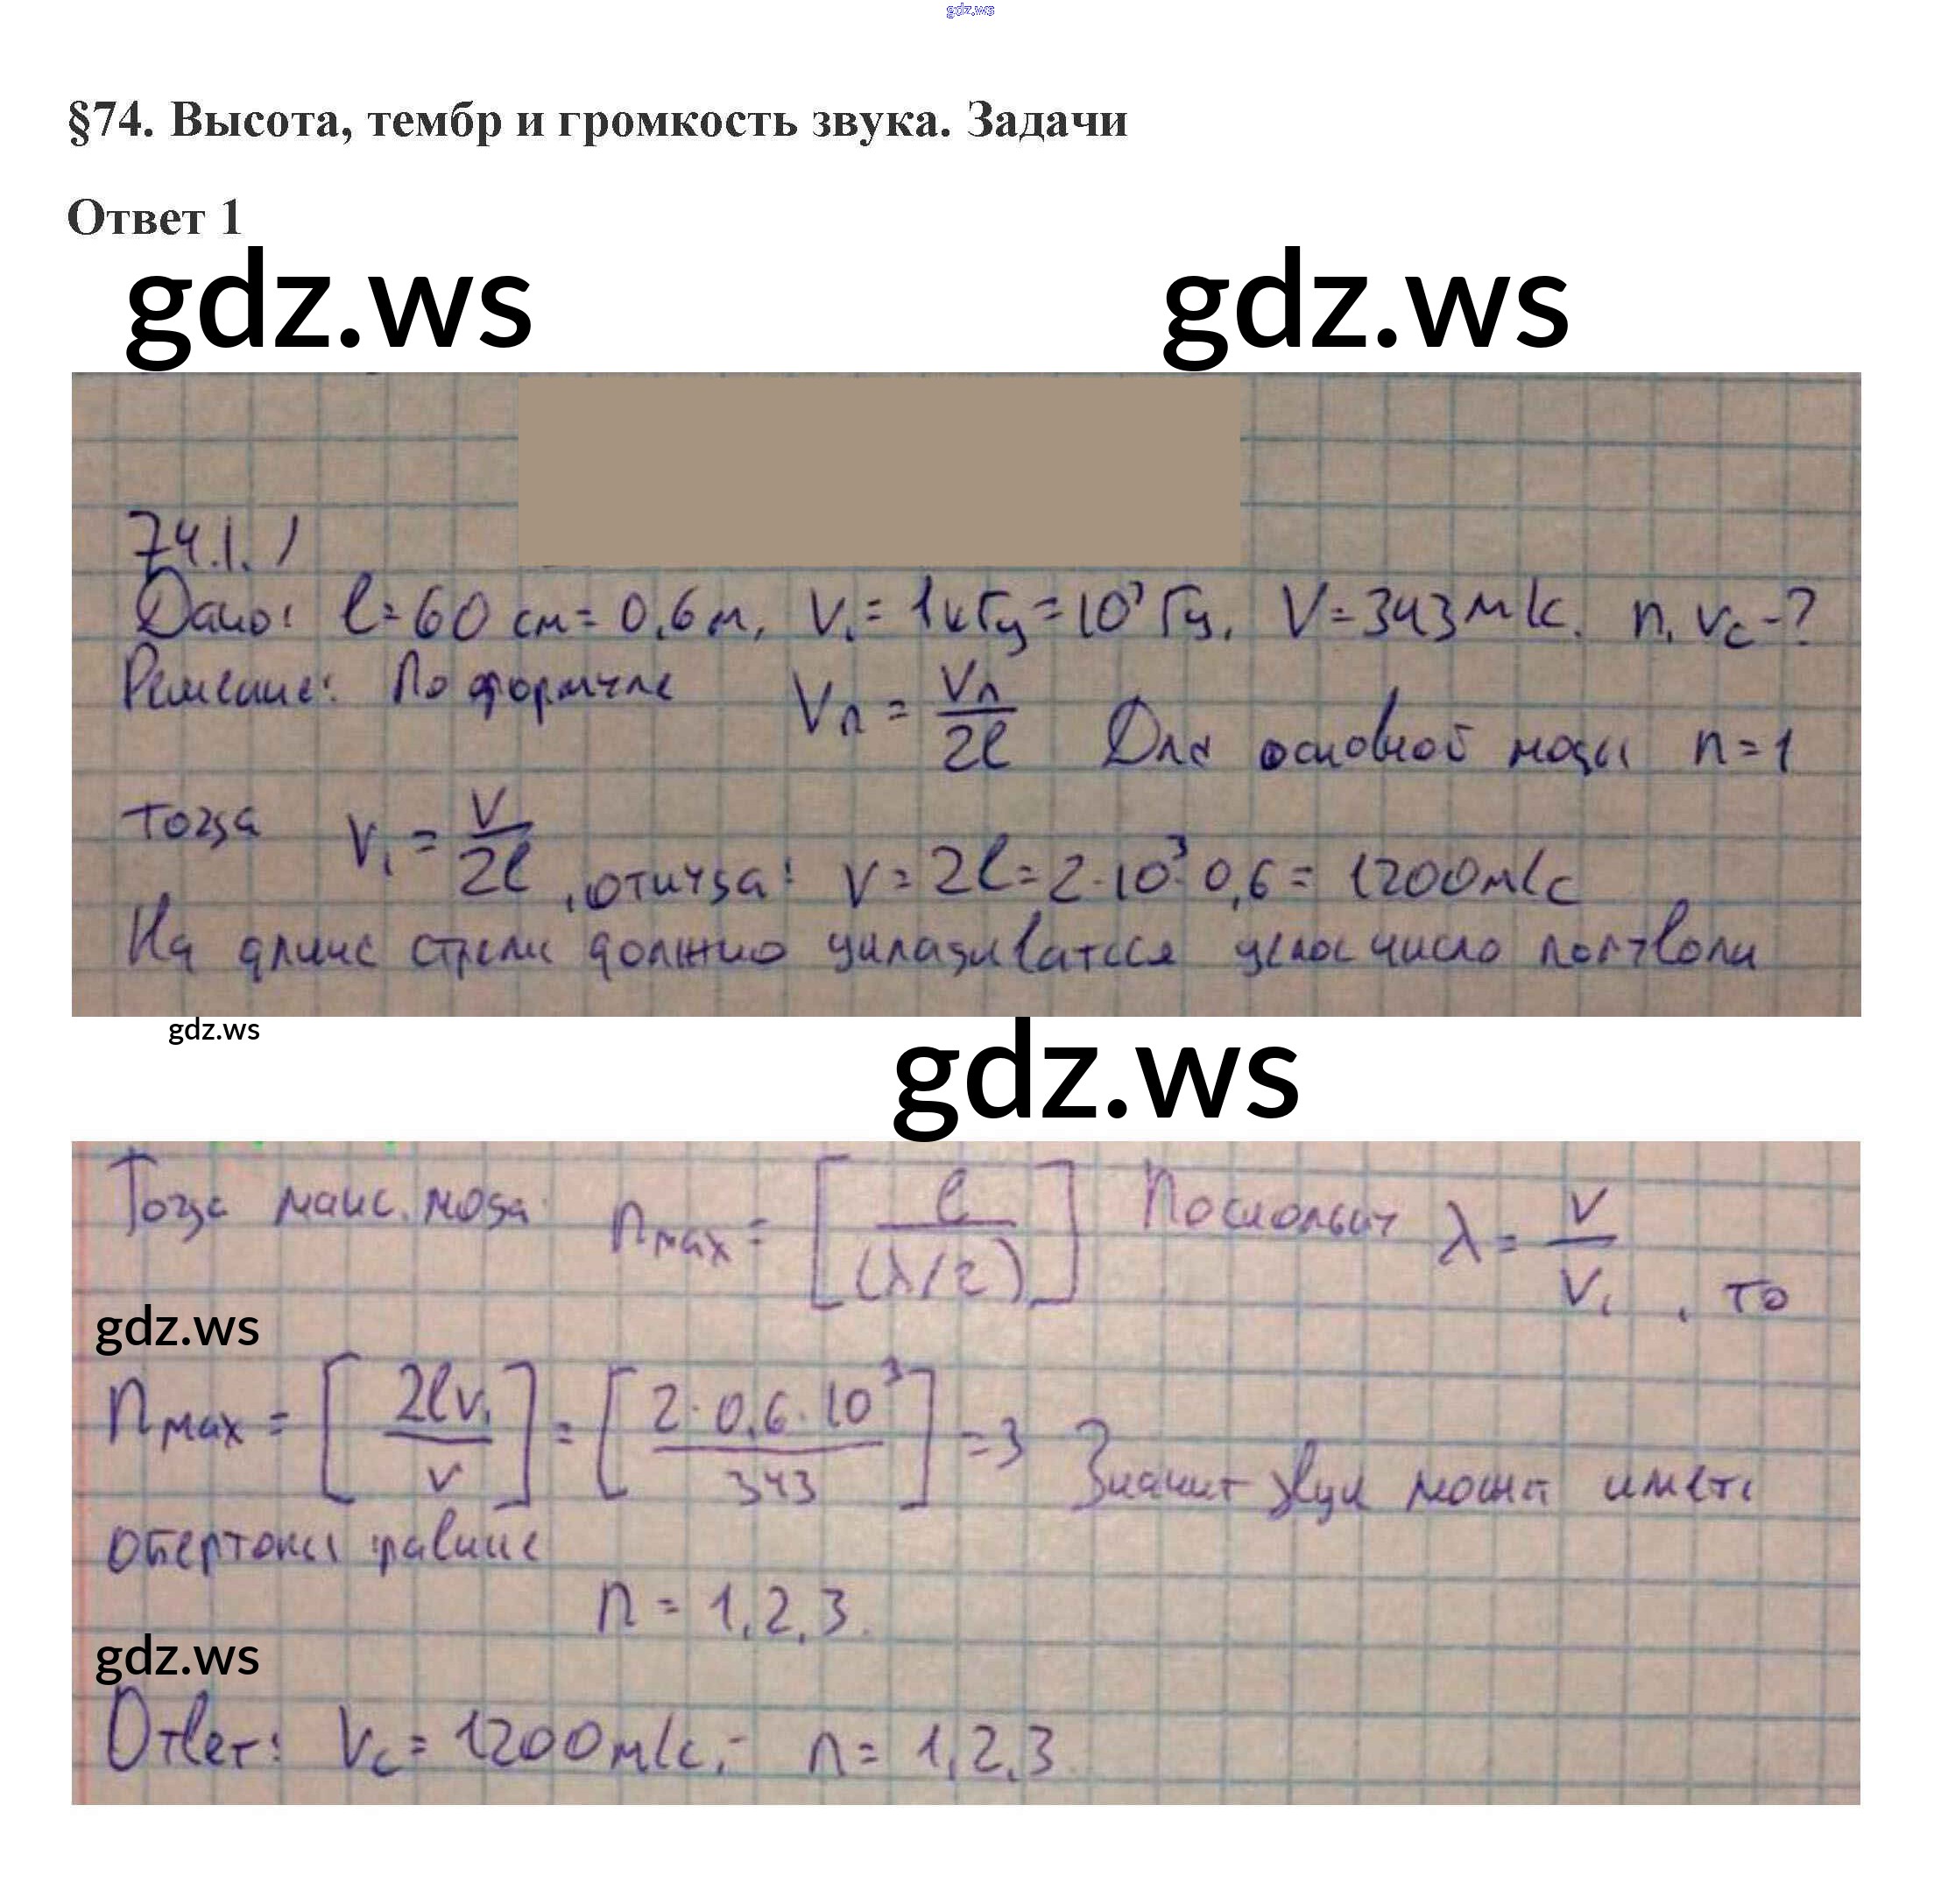 gdz.ws
§74. Высота, тембр и громкость звука. Задачи
Ответ 1
gdz.ws gdz.ws
74.1.)
Дано: l=60 см = 0,6 м, ν₁ = 1кГц = 10³ Гц, V = 343 м/с. n, vc - ?
Решение: По формуле Vn = Vn/2l Для основной моды n = 1
тогда ν₁ = V/2l , откуда: V = 2l = 2·10³·0,6 = 1200м/с
На длине должно укладываться целое число полуволн
gdz.ws
gdz.ws
Тогда макс. мода nmax = [l/(λ/2)] Поскольку λ = V/V₁ , то
gdz.ws
nmax = [2lν₁/v] = [2·0,6·10³/343] = 3 Значит звук может иметь
обертоны равные
n = 1,2,3.
gdz.ws
Ответ: Vc = 1200м/с; n = 1,2,3